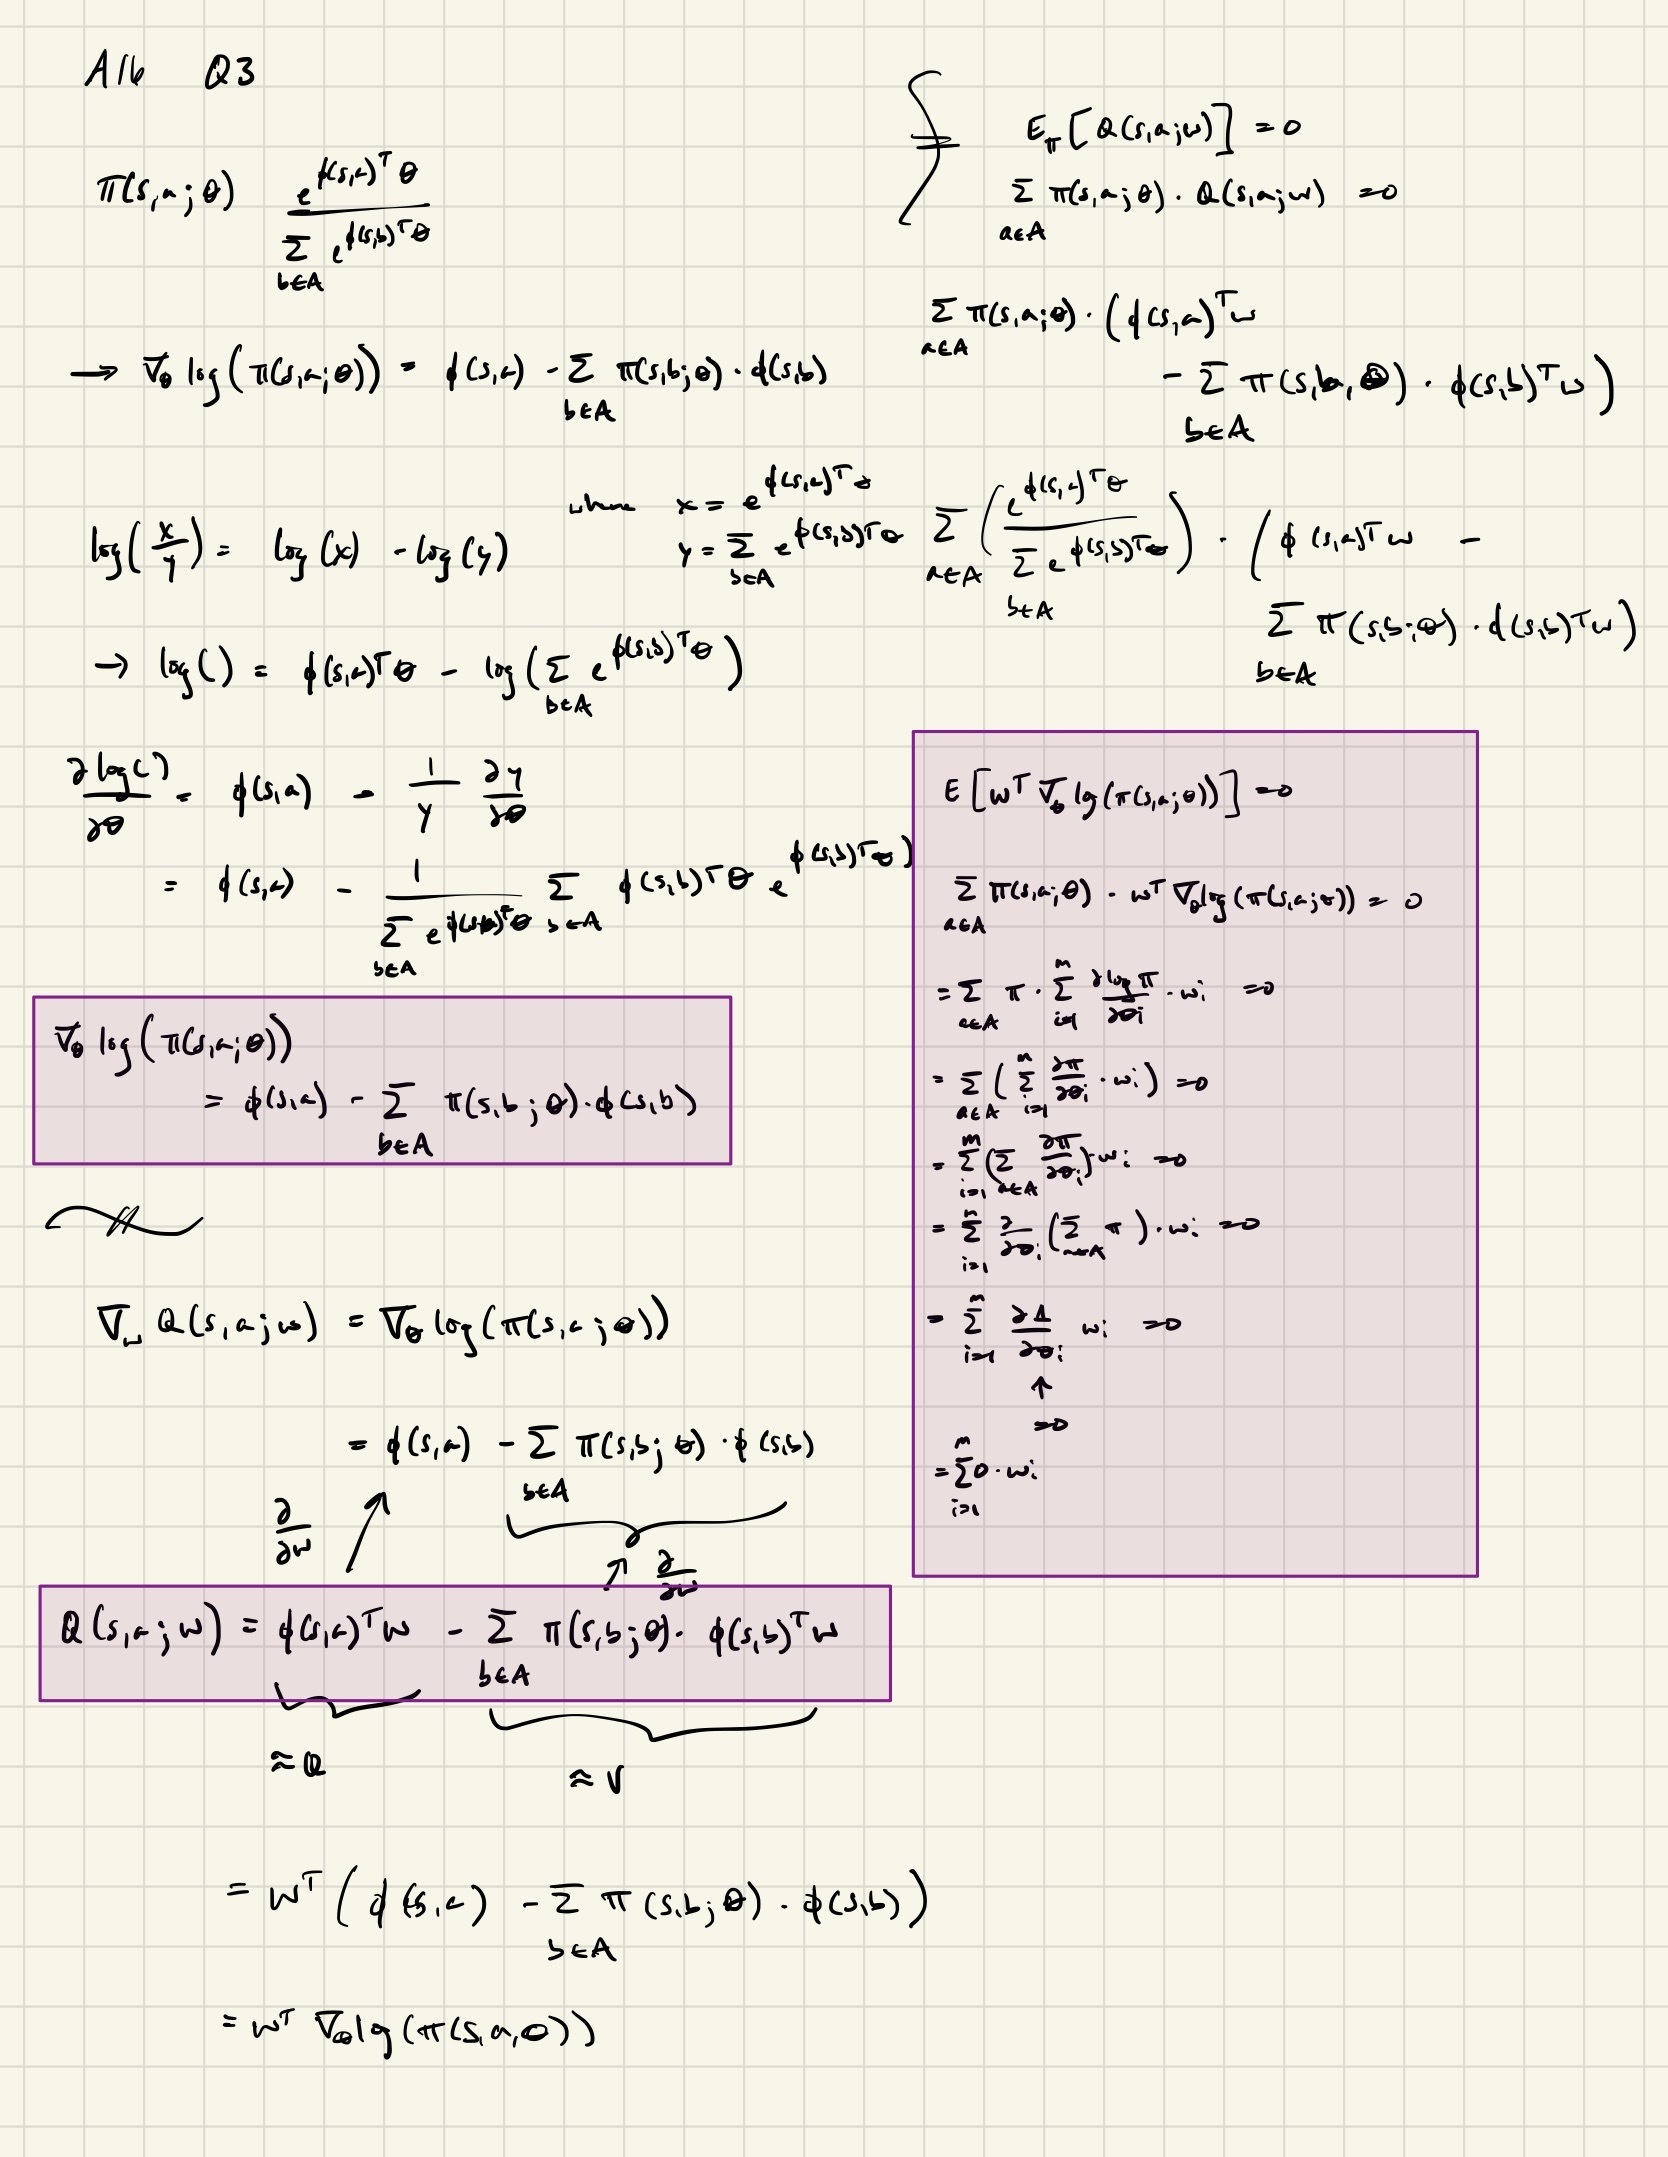 A16 Q3
π(s,a;θ) e^{ϕ(s,a)^T θ} / Σ_{b∈A} e^{ϕ(s,b)^T θ}
→ ∇_θ log(π(s,a;θ)) = ϕ(s,a) - Σ_{b∈A} π(s,b;θ) · ϕ(s,b)
log(x/y) = log(x) - log(y) where x = e^{ϕ(s,a)^T θ}
y = Σ_{b∈A} e^{ϕ(s,b)^T θ}
→ log() = ϕ(s,a)^T θ - log(Σ_{b∈A} e^{ϕ(s,b)^T θ})
∂log()/∂θ = ϕ(s,a) - 1/y ∂y/∂θ
= ϕ(s,a) - 1/(Σ_{b∈A} e^{ϕ(s,b)^T θ}) Σ_{b∈A} ϕ(s,b)^T θ e^{ϕ(s,b)^T θ})
∇_θ log(π(s,a;θ))
= ϕ(s,a) - Σ_{b∈A} π(s,b;θ) · ϕ(s,b)
∇_w Q(s,a;w) = ∇_θ log(π(s,a;θ))
= ϕ(s,a) - Σ_{b∈A} π(s,b;θ) · ϕ(s,b)
∂/∂w ↗ ↗ ∂/∂w
Q(s,a;w) = ϕ(s,a)^T w - Σ_{b∈A} π(s,b;θ) · ϕ(s,b)^T w
≈ Q ≈ V
= w^T (ϕ(s,a) - Σ_{b∈A} π(s,b;θ) · ϕ(s,b))
= w^T ∇_θ log(π(s,a,θ))
E_π[Q(s,a;w)] = 0
Σ_{a∈A} π(s,a;θ) · Q(s,a;w) = 0
Σ_{a∈A} π(s,a;θ) · (ϕ(s,a)^T w
- Σ_{b∈A} π(s,b,θ) · ϕ(s,b)^T w)
Σ_{a∈A} (e^{ϕ(s,a)^T θ} / Σ_{b∈A} e^{ϕ(s,b)^T θ}) · (ϕ(s,a)^T w -
Σ_{b∈A} π(s,b;θ) · ϕ(s,b)^T w)
E[w^T ∇_θ log(π(s,a;θ))] = 0
Σ_{a∈A} π(s,a;θ) · w^T ∇_θ log(π(s,a;θ)) = 0
= Σ_{a∈A} π · Σ_{i=1}^m ∂log π/∂θ_i · w_i = 0
= Σ_{a∈A} (Σ_{i=1}^m ∂π/∂θ_i · w_i) = 0
= Σ_{i=1}^m (Σ_{a∈A} ∂π/∂θ_i) · w_i = 0
= Σ_{i=1}^m ∂/∂θ_i (Σ_{a∈A} π) · w_i = 0
= Σ_{i=1}^m ∂1/∂θ_i w_i = 0
↑
= 0
= Σ_{i=1}^m 0 · w_i